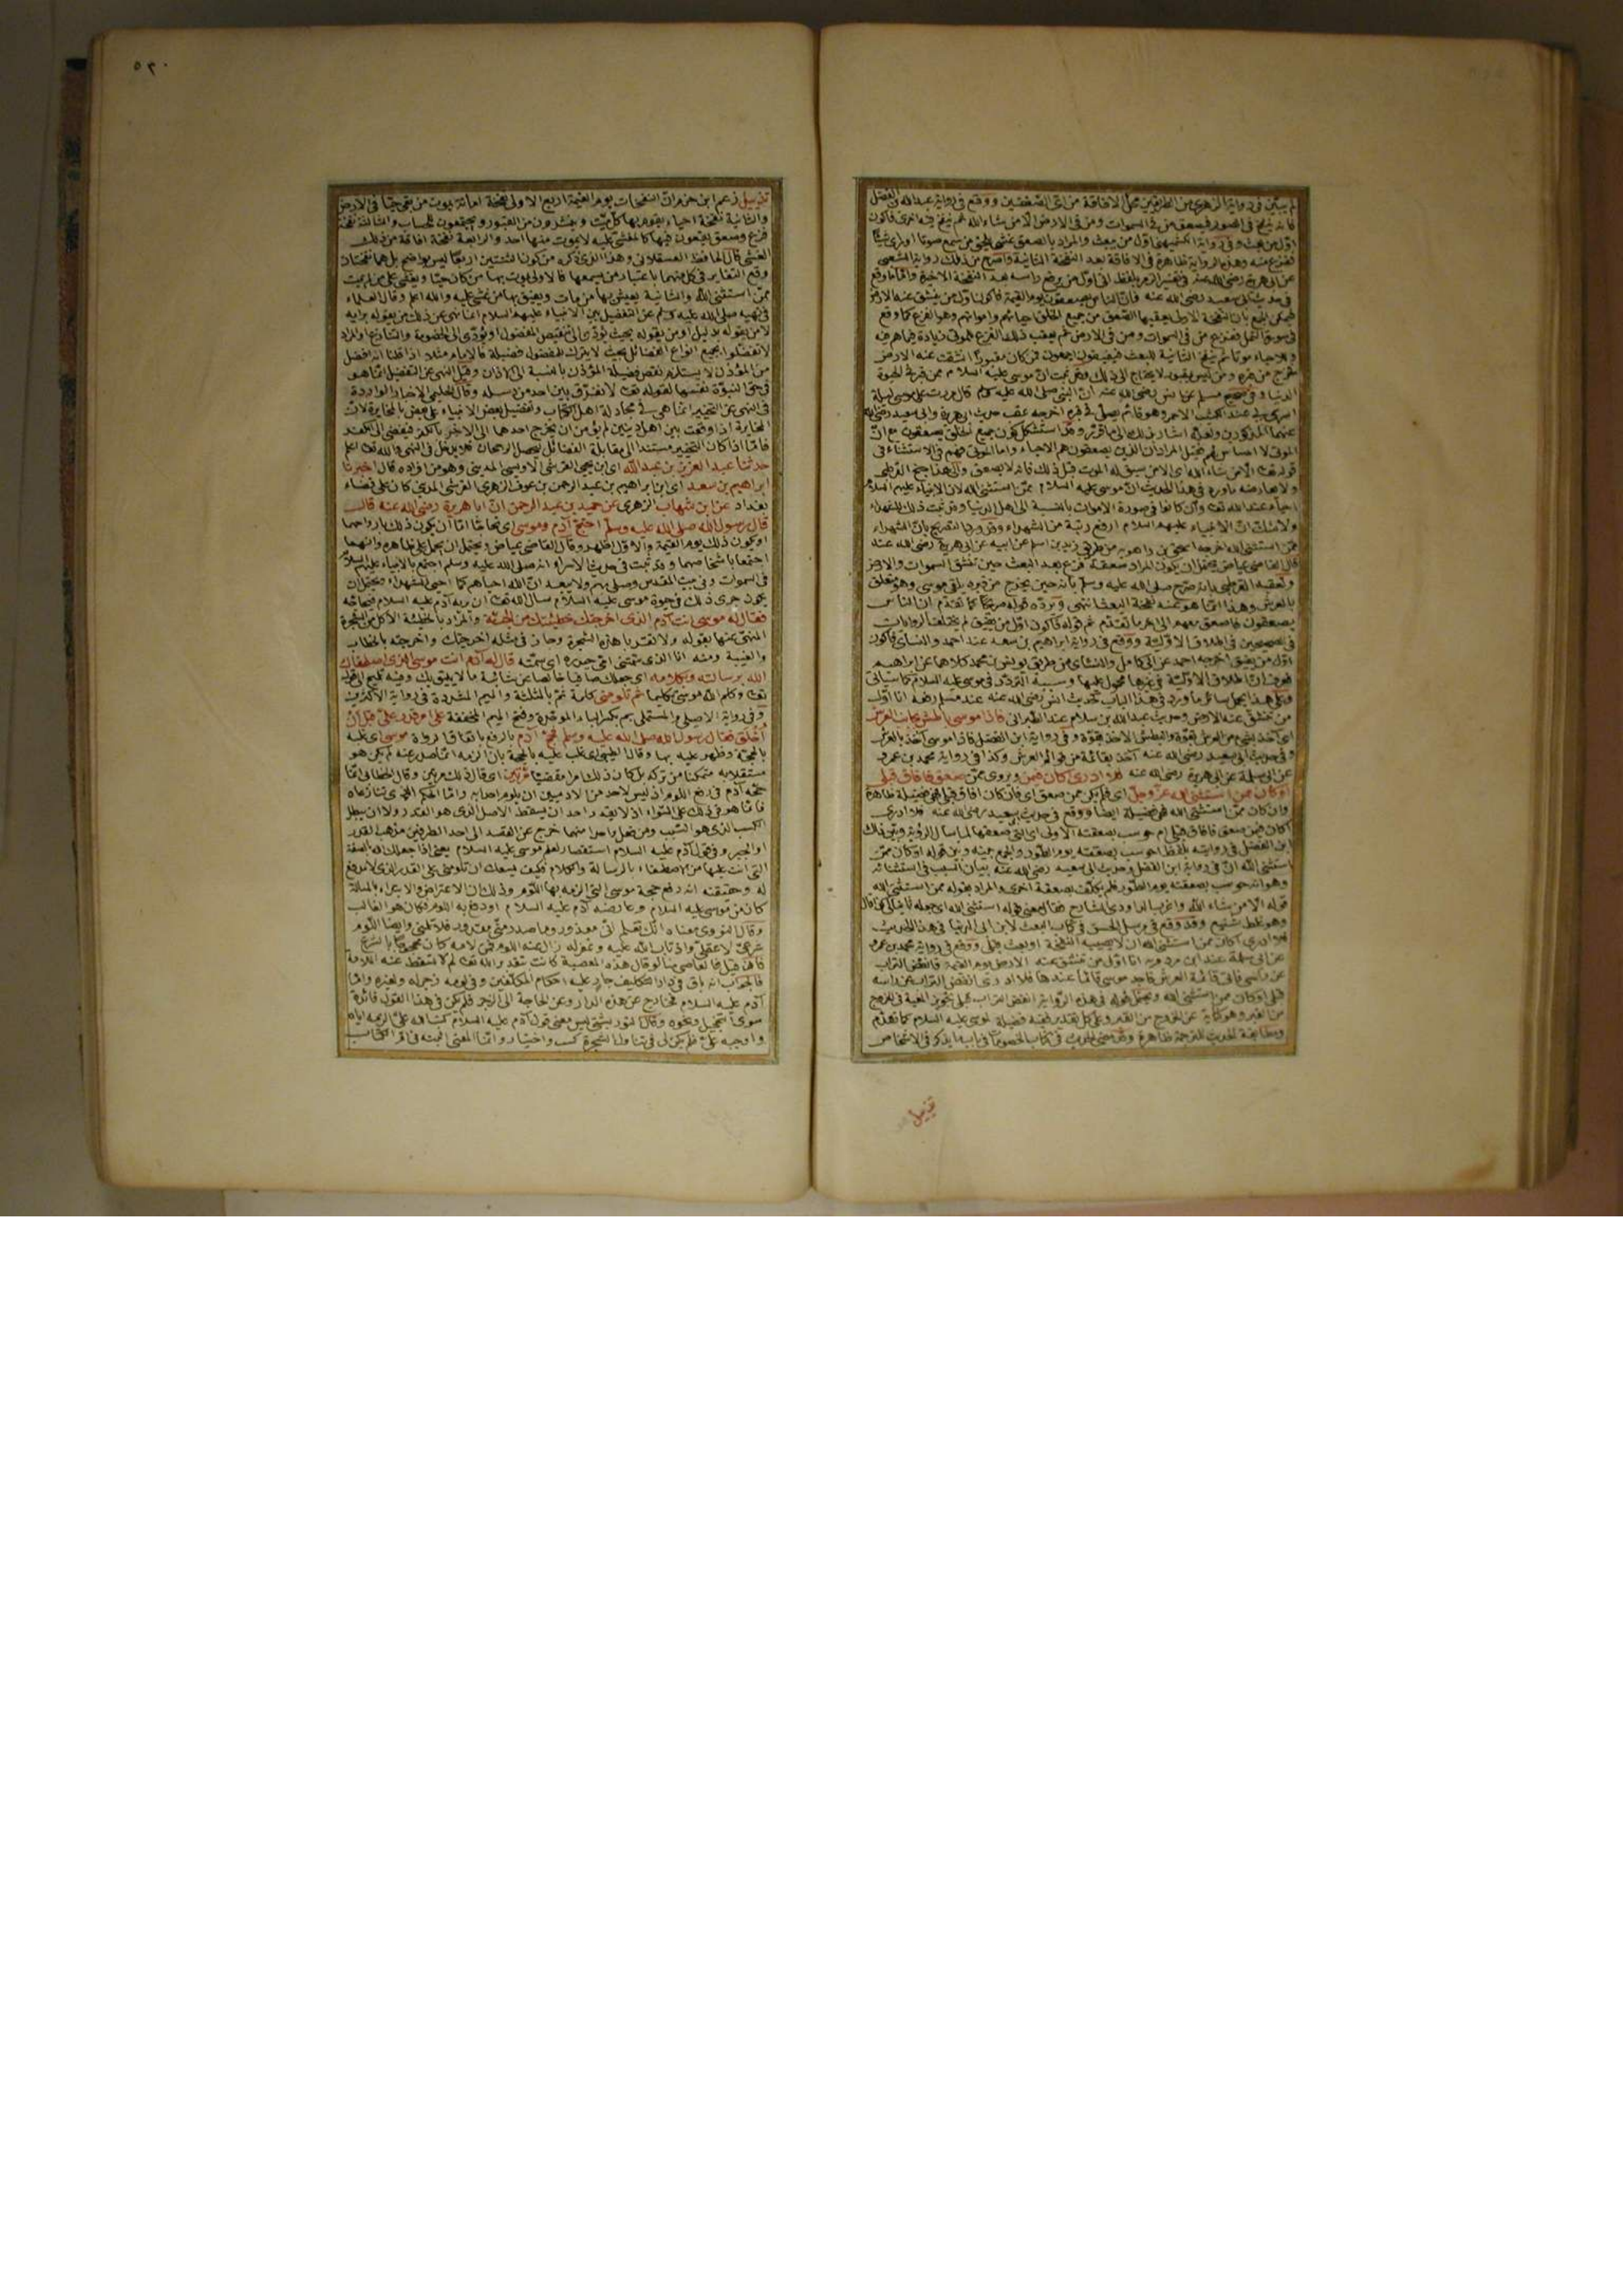 لم يبين في رواية الزهري من الطريقين محل الافاقة من اي الصعقتين ووقع في رواية عبد الله بن الفضل
فانه ينفخ في الصور فيصعق من في السموات ومن في الارض الا من شاء الله ثم ينفخ فيه اخرى فاكون
اول من بعث وفي رواية الكشميهني اول من يبعث والمراد بالصعق غشي يلحق من سمع صوتا او رأى شيئا
يفزع منه وهذه الرواية ظاهرة في الافاقة بعد النفخة الثانية واصرح من ذلك رواية الشعبي
عن ابي هريرة رضي الله عنه في تفسير الزمر بلفظ اني اول من يرفع راسه بعد النفخة الاخيرة واما ما وقع
في حديث ابي سعيد رضي الله عنه فان الناس يصعقون يوم القيمة فاكون اول من ينشق عنه الارض
فيمكن الجمع بان النفخة الاولى يعقبها الصعق من جميع الخلق احيائهم وامواتهم وهو الفزع كما وقع
في سورة النمل ففزع من في السموات ومن في الارض ثم يعقب ذلك الفزع للموتى زيادة فيما هم فيه
وللاحياء موتا ثم ينفخ الثانية للبعث فيفيقون اجمعون فمن كان مقبورا انشقت عنه الارض
فخرج من قبره ومن ليس بمقبور لا يحتاج الى ذلك وقد ثبت ان موسى عليه السلام ممن قبر في الحيوة
الدنيا وفي صحيح مسلم عن انس رضي الله عنه ان النبي صلى الله عليه وسلم قال مررت على موسى ليلة
اسري بي عند الكثيب الاحمر وهو قائم يصلي في قبره اخرجه عقب حديث ابي هريرة وابي سعيد رضي الله
عنهما المذكورين ولعله اشار بذلك الى ما قررته وقد استشكل كون جميع الخلق يصعقون مع ان
الموتى لا احساس لهم فقيل المراد ان الذين يصعقون هم الاحياء واما الموتى فهم في الاستثناء في
قوله تعالى الا من شاء الله اي الا من سبق له الموت قبل ذلك فانه لا يصعق والى هذا جنح القرطبي
ولا يعارضه ما ورد في هذا الحديث ان موسى عليه السلام ممن استثنى الله لان الانبياء عليهم السلام
احياء عند الله تعالى وان كانوا في صورة الاموات بالنسبة الى اهل الدنيا وقد ثبت ذلك للشهداء
ولا شك ان الانبياء عليهم السلام ارفع رتبة من الشهداء وقد ورد التصريح بان الشهداء
ممن استثنى الله اخرجه اسحق بن راهويه من طريق زيد بن اسلم عن ابيه عن ابي هريرة رضي الله عنه
قال القاضي عياض يحتمل ان يكون المراد صعقة فزع بعد البعث حين تنشق السموات والارض
وتعقبه القرطبي بانه صرح صلى الله عليه وسلم بانه حين يخرج من قبره يلقى موسى وهو متعلق
بالعرش وهذا انما هو عند نفخة البعث انتهى ويرده قوله صريحا كما تقدم ان الناس
يصعقون فاصعق معهم الى اخر ما تقدم ثم قوله فاكون اول من يفيق لم يختلف الروايات
في الصحيحين في اطلاق الاولية ووقع في رواية ابراهيم بن سعد عند احمد والنسائي فاكون
اول من يفيق اخرجه احمد عن ابي كامل والنسائي من طريق يونس بن محمد كلاهما عن ابراهيم
فعرف ان اطلاق الاولية في غيرها محمول عليها وسببه التردد في موسى عليه السلام كما سيأتي
وعلى هذا يحمل سائر ما ورد في هذا الباب كحديث انس رضي الله عنه عند مسلم رفعه انا اول
من تنشق عنه الارض وحديث عبد الله بن سلام عند الطبراني فاذا موسى باطش بجانب العرش
اي آخذ بشيء من العرش بقوة والبطش الاخذ بقوة وفي رواية ابن الفضل فاذا موسى آخذ بالعرش
وفي حديث ابي سعيد رضي الله عنه آخذ بقائمة من قوائم العرش وكذا في رواية محمد بن عمرو
عن ابي سلمة عن ابي هريرة رضي الله عنه فلا ادري اكان فيمن ويروى ممن صعق فافاق قبلي
او كان ممن استثنى الله عز وجل اي فلم يكن ممن صعق اي فان كان افاق قبلي فهي فضيلة ظاهرة
وان كان ممن استثنى الله فهي فضيلة ايضا ووقع في حديث ابي سعيد رضي الله عنه فلا ادري
اكان فيمن صعق فافاق قبلي ام حوسب بصعقته الاولى اي التي صعقها لما سال الرؤية وبين ذلك
ابن الفضل في روايته بلفظ احوسب بصعقته يوم الطور والجمع بينه وبين قوله او كان ممن
استثنى الله ان في رواية ابن الفضل وحديث ابي سعيد رضي الله عنه بيان السبب في استثنائه
وهو انه حوسب بصعقته يوم الطور فلم يكلف بصعقة اخرى والمراد بقوله ممن استثنى الله
قوله الا من شاء الله واغرب الداودي الشارح فقال معنى قوله استثنى الله اي جعله ثانيا لي كذا قال
وهو غلط شنيع وقد وقع في مرسل الحسن في كتاب البعث لابن ابي الدنيا في هذا الحديث
فلا ادري اكان ممن استثنى الله ان لا يصيبه النفخة او بعث قبلي ووقع في رواية محمد بن عمرو
عن ابي سلمة عند ابن مردويه انا اول من تنشق عنه الارض يوم القيمة فانفض التراب
عن راسي فاتي قائمة العرش فاجد موسى قائما عندها فلا ادري انفض التراب عن راسه
قبلي او كان ممن استثنى الله ويحتمل قوله في هذه الرواية انفض التراب قبلي تجويز المعية في الخروج
من القبر وهو كناية عن الخروج من القبر وعلى كل تقدير ففيه فضيلة لموسى عليه السلام كما تقدم
ومطابقة الحديث للترجمة ظاهرة وقد مضى الحديث في كتاب الخصومات في باب ما يذكر في الاشخاص
تذييل
٥٣٠
تذييل زعم ابن حزم ان النفخات يوم القيمة اربع الاولى نفخة اماتة يموت من بقي حيا في الارض
والثانية نفخة احياء يقوم بها كل ميت وينشرون من القبور ويجمعون للحساب والثالثة نفخة
فزع وصعق يفيقون فيها كالمغشي عليه لا يموت منها احد والرابعة نفخة افاقة من ذلك
الغشي قال الحافظ العسقلاني وهذا الذي ذكره من كون الثنتين اربعا ليس بواضح بل هما نفختان
وقع التغاير في كل منهما باعتبار من يسمعها فالاولى يموت بها من كان حيا ويغشى على من لم يمت
ممن استثنى الله والثانية يعيش بها من مات ويفيق بها من غشي عليه والله اعلم وقال العلماء
في نهيه صلى الله عليه وسلم عن التفضيل بين الانبياء عليهم السلام انما نهى عن ذلك من يقوله برأيه
لا من يقوله بدليل او من يقوله بحيث يؤدي الى تنقيص المفضول او يؤدي الى الخصومة والتنازع او المراد
لا تفضلوا بجميع انواع الفضائل بحيث لا يترك للمفضول فضيلة فالامام مثلا اذا قلنا انه افضل
من المؤذن لا يستلزم نقص فضيلة المؤذن بالنسبة الى الاذان وقيل النهي عن التفضيل انما هو
في حق النبوة نفسها لقوله تعالى لا نفرق بين احد من رسله وقال الحليمي الاخبار الواردة
في النهي عن التخيير انما هي في مجادلة اهل الكتاب وتفضيل بعض الانبياء على بعض بالمخايرة لان
المخايرة اذا وقعت بين اهل دينين لم يؤمن ان يخرج احدهما الى الاخر بالكفر فيفضي الى الكفر
فاما اذا كان التخيير مستندا الى مقابلة الفضائل ليحصل الرجحان فلا يدخل في النهي والله تعالى اعلم
حدثنا عبد العزيز بن عبد الله اي ابن يحيى القرشي الاويسي المديني وهو من افراده قال اخبرنا
ابراهيم بن سعد اي ابن ابراهيم بن عبد الرحمن بن عوف الزهري القرشي المدني كان على قضاء
بغداد عن ابن شهاب الزهري عن حميد بن عبد الرحمن ان ابا هريرة رضي الله عنه قال
قال رسول الله صلى الله عليه وسلم احتج آدم وموسى اي تحاجا اما ان يكون ذلك بارواحهما
او يكون ذلك يوم القيمة والاول اظهر وقال القاضي عياض ويحتمل ان يحمل على ظاهره وانهما
اجتمعا باشخاصهما وقد ثبت في حديث الاسراء انه صلى الله عليه وسلم اجتمع بالانبياء عليهم السلام
في السموات وفي بيت المقدس وصلى بهم ولا يبعد ان الله احياهم كما احيى الشهداء ويحتمل ان
يكون جرى ذلك في حيوة موسى عليه السلام سال الله تعالى ان يريه آدم عليه السلام فحاجه
فقال له موسى انت آدم الذي اخرجتك خطيئتك من الجنة والمراد بالخطيئة الاكل من الشجرة
المنهي عنها بقوله ولا تقربا هذه الشجرة وجاز في مثله اخرجتك واخرجته بالخطاب
والغيبة ومنه انا الذي سمتني امي حيدره اي سمته قال له آدم انت موسى الذي اصطفاك
الله برسالته وبكلامه اي جعلك صافيا خالصا عن شائبة ما لا يليق بك وفيه تلميح الى قوله
تعالى وكلم الله موسى تكليما ثم تلومني كلمة ثم بالمثلثة والميم المشددة في رواية الاكثرين
وفي رواية الاصيلي والمستملي بم بكسر الباء الموحدة وفتح الميم المخففة على امر قدر علي قبل ان
أُخلق فقال رسول الله صلى الله عليه وسلم فحج آدم بالرفع باتفاق الرواة موسى اي غلبه
بالحجة وظهر عليه بها وقال الطيبي اي غلب عليه بالحجة بان الزمه ان ما صدر عنه لم يكن هو
مستقلا به متمكنا من تركه بل كان ذلك امرا مقضيا مرتين اي قال ذلك مرتين وقال الخطابي انما
حجه آدم في رفع اللوم اذ ليس لاحد من الآدميين ان يلوم احدا به واما الحكم الذي تنازعاه
فانما هو في ذلك على السواء اذ لا يقدر احد ان يسقط الاصل الذي هو القدر ولا ان يبطل
الكسب الذي هو السبب ومن فعل واحدا منهما خرج عن القصد الى احد الطرفين مذهب القدر
او الجبر وفي قول آدم عليه السلام استقصار لعلم موسى عليه السلام يعني اذا جعلك الله بالصفة
التي انت عليها من الاصطفاء بالرسالة والكلام فكيف يسعك ان تلومني على القدر الذي لا مدفع
له وحقيقته انه دفع حجة موسى التي الزمه بها اللوم وذلك ان الاعتراض والابتداء بالمسالة
كان من موسى عليه السلام وعارضه آدم عليه السلام اودفع به اللوم فكان هو الغالب
وقال النووي معناه انك تعلم اني معذور وما صدر مني مقدور فلا تلمني وايضا اللوم
شرعي لا عقلي واذ تاب الله عليه وغفر له زال عنه اللوم فمن لامه كان محجوجا بالشرع
فان قيل فالعاصي منا لو قال هذه المعصية كانت بتقدير الله تعالى لم لا تسقط عنه الملامة
فالجواب انه باق في دار التكليف جار عليه احكام المكلفين وفي لومه زجر له ولغيره واما
آدم عليه السلام فخارج عن هذه الدار وعن الحاجة الى الزجر فلم يكن في هذا القول فائدة
سوى التخجيل ونحوه وقال التوربشتي ليس معنى قول آدم عليه السلام كتب الله علي الزمه اياه
واوجبه علي فلم يكن لي في تناول الشجرة كسب واختيار وانما المعنى اثبته في ام الكتاب